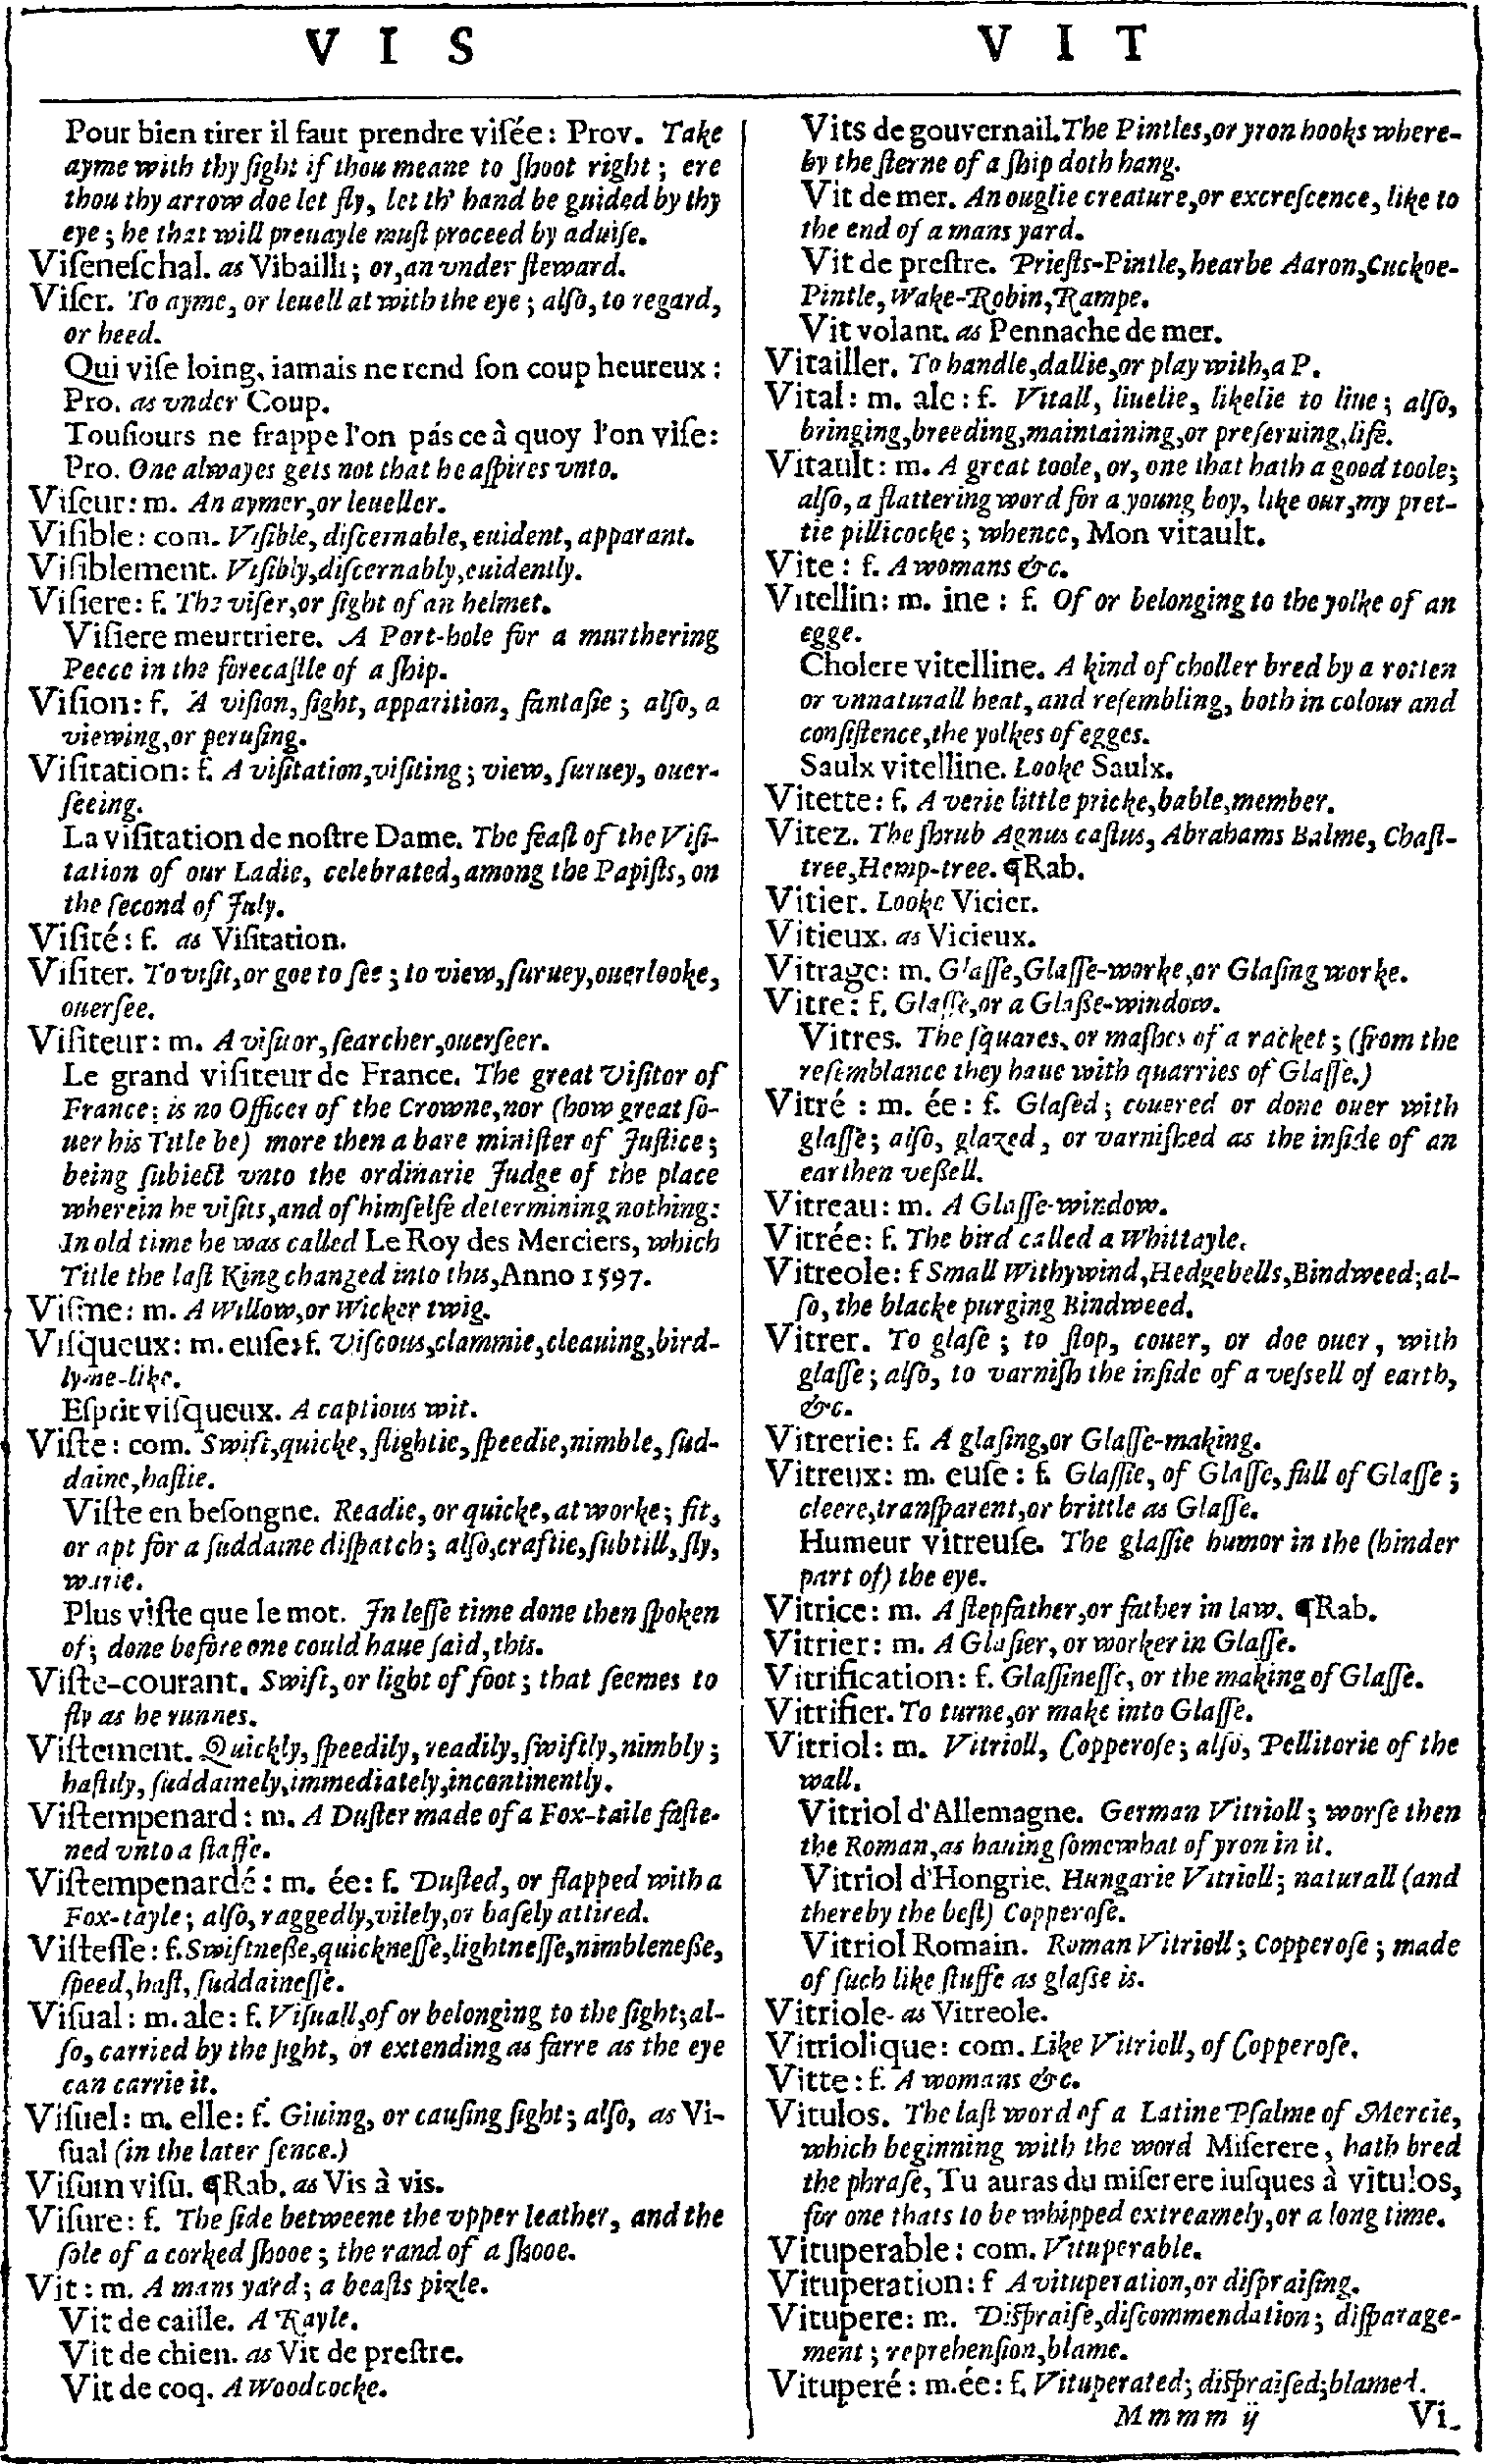 V I S
V I T
Pour bien tirer il faut prendre viſée: Prov. Take
ayme with thy ſight if thou meane to ſhoot right; ere
thou thy arrow doe let fly, let th' hand be guided by thy
eye; he that will preuayle muſt proceed by aduiſe.
Viſeneſchal. as Vibailli; or, an vnder ſteward.
Viſer. To ayme, or leuell at with the eye; alſo, to regard,
or heed.
Qui viſe loing, iamais ne rend ſon coup heureux:
Pro. as vnder Coup.
Touſiours ne frappe l'on pás ce à quoy l'on viſe:
Pro. One alwayes gets not that he aſpires vnto.
Viſeur: m. An aymer, or leueller.
Viſible: com. Viſible, diſcernable, euident, apparant.
Viſiblement. Viſibly, diſcernably, euidently.
Viſiere: f. The viſer, or ſight of an helmet.
Viſiere meurtriere. A Port-hole for a murthering
Peece in the forecaſtle of a ſhip.
Viſion: f. A viſion, ſight, apparition, fantaſie; alſo, a
viewing, or peruſing.
Viſitation: f. A viſitation, viſiting; view, ſuruey, ouer-
ſeeing.
La viſitation de noſtre Dame. The feaſt of the Viſi-
tation of our Ladie, celebrated, among the Papiſts, on
the ſecond of July.
Viſité: f. as Viſitation.
Viſiter. To viſit, or goe to ſee; to view, ſuruey, ouerlooke,
ouerſee.
Viſiteur: m. A viſitor, ſearcher, ouerſeer.
Le grand viſiteur de France. The great Viſitor of
France; is no Officer of the Crowne, nor (how great ſo-
uer his Title be) more then a bare miniſter of Juſtice;
being ſubiect vnto the ordinarie Judge of the place
wherein he viſits, and of himſelfe determining nothing:
In old time he was called Le Roy des Merciers, which
Title the laſt King changed into this, Anno 1597.
Viſine: m. A Willow, or Wicker twig.
Viſqueux: m. euſe: f. Viſcous, clammie, cleauing, bird-
lyme-like.
Eſprit viſqueux. A captious wit.
Viſte: com. Swift, quicke, flightie, ſpeedie, nimble, ſud-
daine, haſtie.
Viſte en beſongne. Readie, or quicke, at worke; fit,
or apt for a ſuddaine diſpatch; alſo, craftie, ſubtill, ſly,
warie.
Plus viſte que le mot. In leſſe time done then ſpoken
of; done before one could haue ſaid, this.
Viſte-courant. Swift, or light of foot; that ſeemes to
fly as he runnes.
Viſtement. Quickly, ſpeedily, readily, ſwiftly, nimbly;
haſtily, ſuddainely, immediately, incontinently.
Viſtempenard: m. A Duſter made of a Fox-taile faſte-
ned vnto a ſtaffe.
Viſtempenardé: m. ée: f. Duſted, or flapped with a
Fox-tayle; alſo, raggedly, vilely, or baſely attired.
Viſteſſe: f. Swiftneſſe, quickneſſe, lightneſſe, nimbleneſſe,
ſpeed, haſt, ſuddaineſſe.
Viſual: m. ale: f. Viſuall, of or belonging to the ſight; al-
ſo, carried by the ſight, or extending as farre as the eye
can carrie it.
Viſuel: m. elle: f. Giuing, or cauſing ſight; alſo, as Vi-
ſual (in the later ſence.)
Viſum viſu. ¶Rab. as Vis à vis.
Viſure: f. The ſide betweene the vpper leather, and the
ſole of a corked ſhooe; the rand of a ſhooe.
Vit: m. A mans yard; a beaſts pizle.
Vit de caille. A Rayle.
Vit de chien. as Vit de preſtre.
Vit de coq. A Woodcocke.
Vits de gouvernail. The Pintles, or yron hooks where-
by the ſterne of a ſhip doth hang.
Vit de mer. An ouglie creature, or excreſcence, like to
the end of a mans yard.
Vit de preſtre. Prieſts-Pintle, hearbe Aaron, Cuckoe-
Pintle, Wake-Robin, Rampe.
Vit volant. as Pennache de mer.
Vitailler. To handle, dallie, or play with, a P.
Vital: m. ale: f. Vitall, liuelie, likelie to liue; alſo,
bringing, breeding, maintaining, or preſeruing, life.
Vitault: m. A great toole, or, one that hath a good toole;
alſo, a flattering word for a young boy, like our, my pret-
tie pillicocke; whence, Mon vitault.
Vite: f. A womans &c.
Vitellin: m. ine: f. Of or belonging to the yolke of an
egge.
Cholere vitelline. A kind of choller bred by a rotten
or vnnaturall heat, and reſembling, both in colour and
conſiſtence, the yolkes of egges.
Saulx vitelline. Looke Saulx.
Vitette: f. A verie little pricke, bable, member.
Vitez. The ſhrub Agnus caſtus, Abrahams Balme, Chaſt-
tree, Hemp-tree. ¶Rab.
Vitier. Looke Vicier.
Vitieux. as Vicieux.
Vitrage: m. Glaſſe, Glaſſe-worke, or Glaſing worke.
Vitre: f. Glaſſe, or a Glaſſe-window.
Vitres. The ſquares, or maſhes of a racket; (from the
reſemblance they haue with quarries of Glaſſe.)
Vitré: m. ée: f. Glaſed; couered or done ouer with
glaſſe; alſo, glazed, or varniſhed as the inſide of an
earthen veſſell.
Vitreau: m. A Glaſſe-window.
Vitrée: f. The bird called a Whittayle.
Vitreole: f Small Withywind, Hedgebells, Bindweed; al-
ſo, the blacke purging Bindweed.
Vitrer. To glaſe; to ſtop, couer, or doe ouer, with
glaſſe; alſo, to varniſh the inſide of a veſſell of earth,
&c.
Vitrerie: f. A glaſing, or Glaſſe-making.
Vitreux: m. euſe: f. Glaſſie, of Glaſſe, full of Glaſſe;
cleere, tranſparent, or brittle as Glaſſe.
Humeur vitreuſe. The glaſſie humor in the (hinder
part of) the eye.
Vitrice: m. A ſtepfather, or father in law. ¶Rab.
Vitrier: m. A Glaſier, or worker in Glaſſe.
Vitrification: f. Glaſſineſſe, or the making of Glaſſe.
Vitrifier. To turne, or make into Glaſſe.
Vitriol: m. Vitrioll, Copperoſe; alſo, Pellitorie of the
wall.
Vitriol d'Allemagne. German Vitrioll; worſe then
the Roman, as hauing ſomewhat of yron in it.
Vitriol d'Hongrie. Hungarie Vitrioll; naturall (and
thereby the beſt) Copperoſe.
Vitriol Romain. Roman Vitrioll; Copperoſe; made
of ſuch like ſtuffe as glaſſe is.
Vitriole- as Vitreole.
Vitriolique: com. Like Vitrioll, of Copperoſe.
Vitte: f. A womans &c.
Vitulos. The laſt word of a Latine Pſalme of Mercie,
which beginning with the word Miſerere, hath bred
the phraſe, Tu auras du miſerere iuſques à vitulos,
for one thats to be whipped extreamely, or a long time.
Vituperable: com. Vituperable.
Vituperation: f A vituperation, or diſpraiſing.
Vitupere: m. Diſpraiſe, diſcommendation; diſparage-
ment; reprehenſion, blame.
Vituperé: m. ée: f. Vituperated; diſpraiſed; blamed.
Mmmm ij
Vi-